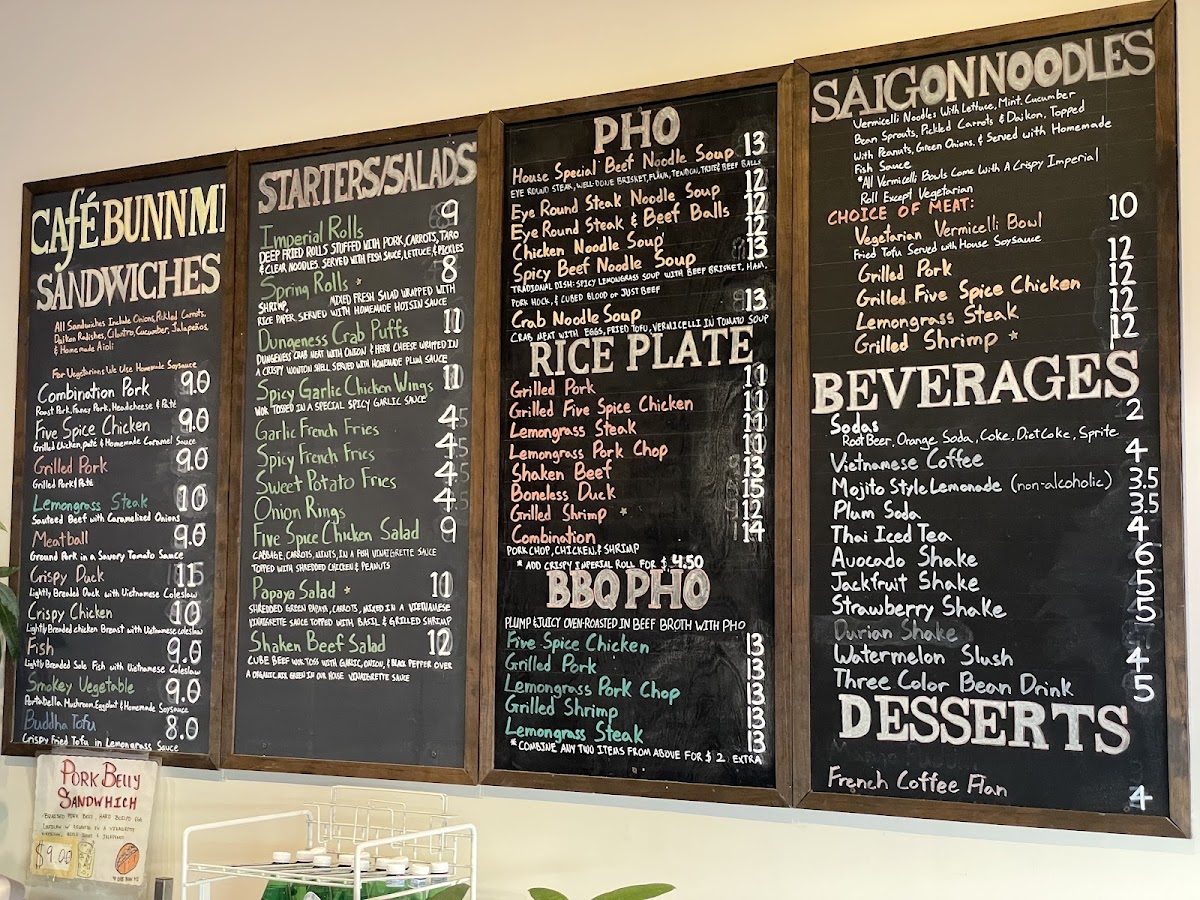 Café BUNN MI
SANDWICHES
All Sandwiches Include Onions, Pickled Carrots,
Daikon Radishes, Cilantro, Cucumber, Jalapeños,
& Homemade Aioli
For Vegetarians We Use Homemade Soysauce
Combination Pork 9.0
Roast Pork, Fancy Pork, Headcheese & Paté
Five Spice Chicken 9.0
Grilled Chicken, paté & Homemade Caramel Sauce
Grilled Pork 9.0
Grilled Pork & Paté
Lemongrass Steak 10
Sauteed Beef with Caramelized Onions
Meatball 9.0
Ground Pork in a Savory Tomato Sauce
Crispy Duck 11
Lightly Breaded Duck with Vietnamese Coleslaw
Crispy Chicken 10
Lightly Breaded chicken Breast with Vietnamese coleslaw
Fish 9.0
Lightly Breaded Sole Fish with Vietnamese Coleslaw
Smokey Vegetable 9.0
Portabella Mushroom, Eggplant & Homemade Soysauce
Buddha Tofu 8.0
Crispy Fried Tofu in Lemongrass Sauce
PORK BELLY
SANDWHICH
$9.00
STARTERS/SALADS
Imperial Rolls 9
DEEP FRIED ROLLS STUFFED WITH PORK, CARROTS, TARO
& CLEAR NOODLES. SERVED WITH FISH SAUCE, LETTUCE, & PICKLES
Spring Rolls * 8
SHRIMP, MIXED FRESH SALAD WRAPPED WITH
RICE PAPER SERVED WITH HOMEMADE HOISIN SAUCE
Dungeness Crab Puffs 11
DUNGENESS CRAB MEAT WITH ONION & HERB CHEESE WRAPPED IN
A CRISPY WONTON SHELL SERVED WITH HOMEMADE PLUM SAUCE
Spicy Garlic Chicken Wings 11
WOK TOSSED IN A SPECIAL SPICY GARLIC SAUCE
Garlic French Fries 4
Spicy French Fries 4
Sweet Potato Fries 4
Onion Rings 4
Five Spice Chicken Salad 9
CABBAGE, CARROTS, MINTS, IN A FISH VINAIGRETTE SAUCE
TOPPED WITH SHREDDED CHICKEN & PEANUTS
Papaya Salad * 11
SHREDDED GREEN PAPAYA, CARROTS, MIXED IN A VIETNAMESE
VINAIGRETTE SAUCE TOPPED WITH BASIL & GRILLED SHRIMP
Shaken Beef Salad 12
CUBE BEEF WOK TOSS WITH GARLIC, ONION, & BLACK PEPPER OVER
A ORGANIC MIX GREEN IN OUR HOUSE VINAIGRETTE SAUCE
PHO
House Special Beef Noodle Soup 13
EYE ROUND STEAK, WELL-DONE BRISKET, FLANK, TENDON, TRIPE & BEEF BALLS
Eye Round Steak Noodle Soup 12
Eye Round Steak & Beef Balls 12
Chicken Noodle Soup 12
Spicy Beef Noodle Soup 13
TRADIONAL DISH: SPICY LEMONGRASS SOUP WITH BEEF BRISKET, HAM,
PORK HOCK, & CUBED BLOOD OR JUST BEEF
Crab Noodle Soup 13
CRAB MEAT WITH EGGS, FRIED TOFU, VERMICELLI IN TOMATO SOUP
RICE PLATE
Grilled Pork 11
Grilled Five Spice Chicken 11
Lemongrass Steak 11
Lemongrass Pork Chop 11
Shaken Beef 13
Boneless Duck 15
Grilled Shrimp * 12
Combination 14
PORK CHOP, CHICKEN, & SHRIMP
* ADD CRISPY IMPERIAL ROLL FOR $ 4.50
BBQ PHO
PLUMP & JUICY OVEN-ROASTED IN BEEF BROTH WITH PHO
Five Spice Chicken 13
Grilled Pork 13
Lemongrass Pork Chop 13
Grilled Shrimp 13
Lemongrass Steak 13
*COMBINE ANY TWO ITEMS FROM ABOVE FOR $ 2 EXTRA
SAIGON NOODLES
Vermicelli Noodles With Lettuce, Mint, Cucumber
Bean Sprouts, Pickled Carrots & Daikon, Topped
With Peanuts, Green Onions, & Served with Homemade
Fish Sauce
*All Vermicelli Bowls Come With A Crispy Imperial
Roll Except Vegetarian
CHOICE OF MEAT:
Vegetarian Vermicelli Bowl 10
Fried Tofu Served with House Soysauce
Grilled Pork 12
Grilled Five Spice Chicken 12
Lemongrass Steak 12
Grilled Shrimp * 12
BEVERAGES
Sodas 2
Root Beer, Orange Soda, Coke, Diet Coke, Sprite
Vietnamese Coffee 4
Mojito Style Lemonade (non-alcoholic) 3.5
Plum Soda 3.5
Thai Iced Tea 4
Avocado Shake 6
Jackfruit Shake 5
Strawberry Shake 5
Durian Shake
Watermelon Slush 4
Three Color Bean Drink 5
DESSERTS
French Coffee Flan 4